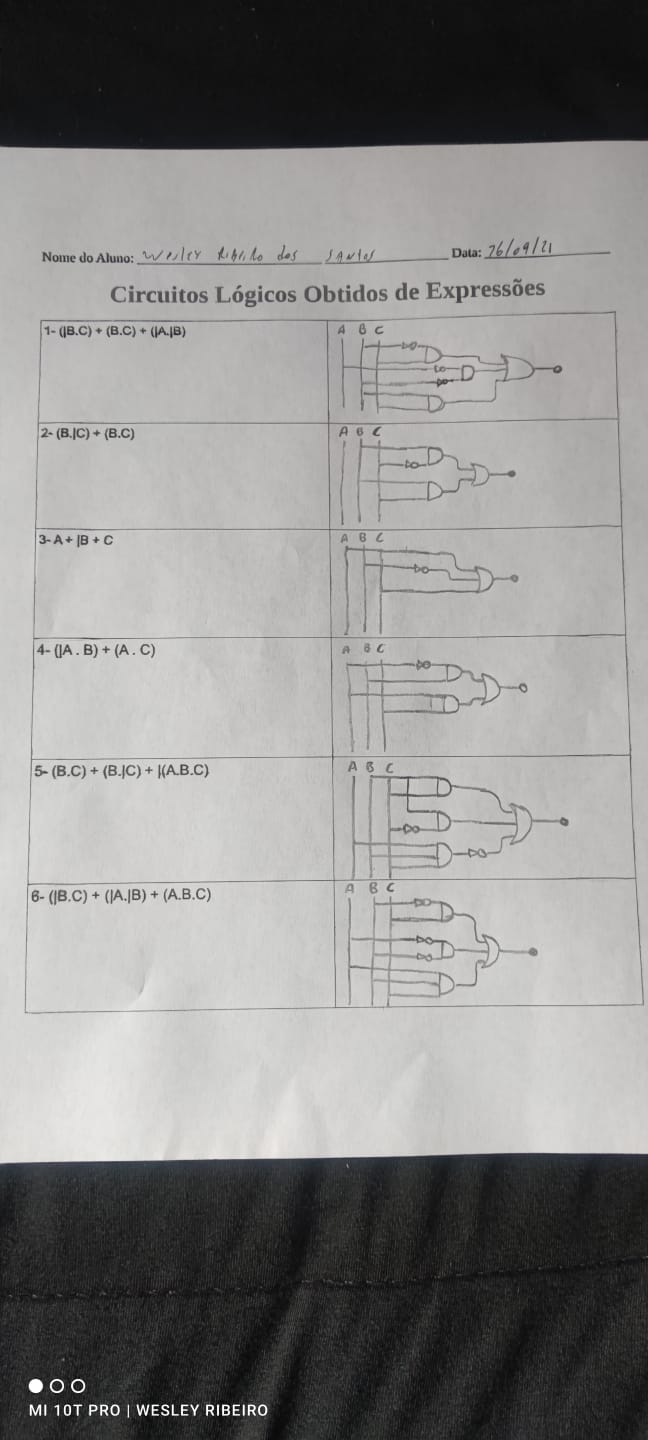 Nome do Aluno: Wesley Ribeiro dos Santos Data: 26/09/21
Circuitos Lógicos Obtidos de Expressões
1- (|B.C) + (B.C) + (|A.|B)
A B C
2- (B.|C) + (B.C)
A B C
3- A + |B + C
A B C
4- (|A . B) + (A . C)
A B C
5- (B.C) + (B.|C) + |(A.B.C)
A B C
6- (|B.C) + (|A.|B) + (A.B.C)
A B C
MI 10T PRO | WESLEY RIBEIRO